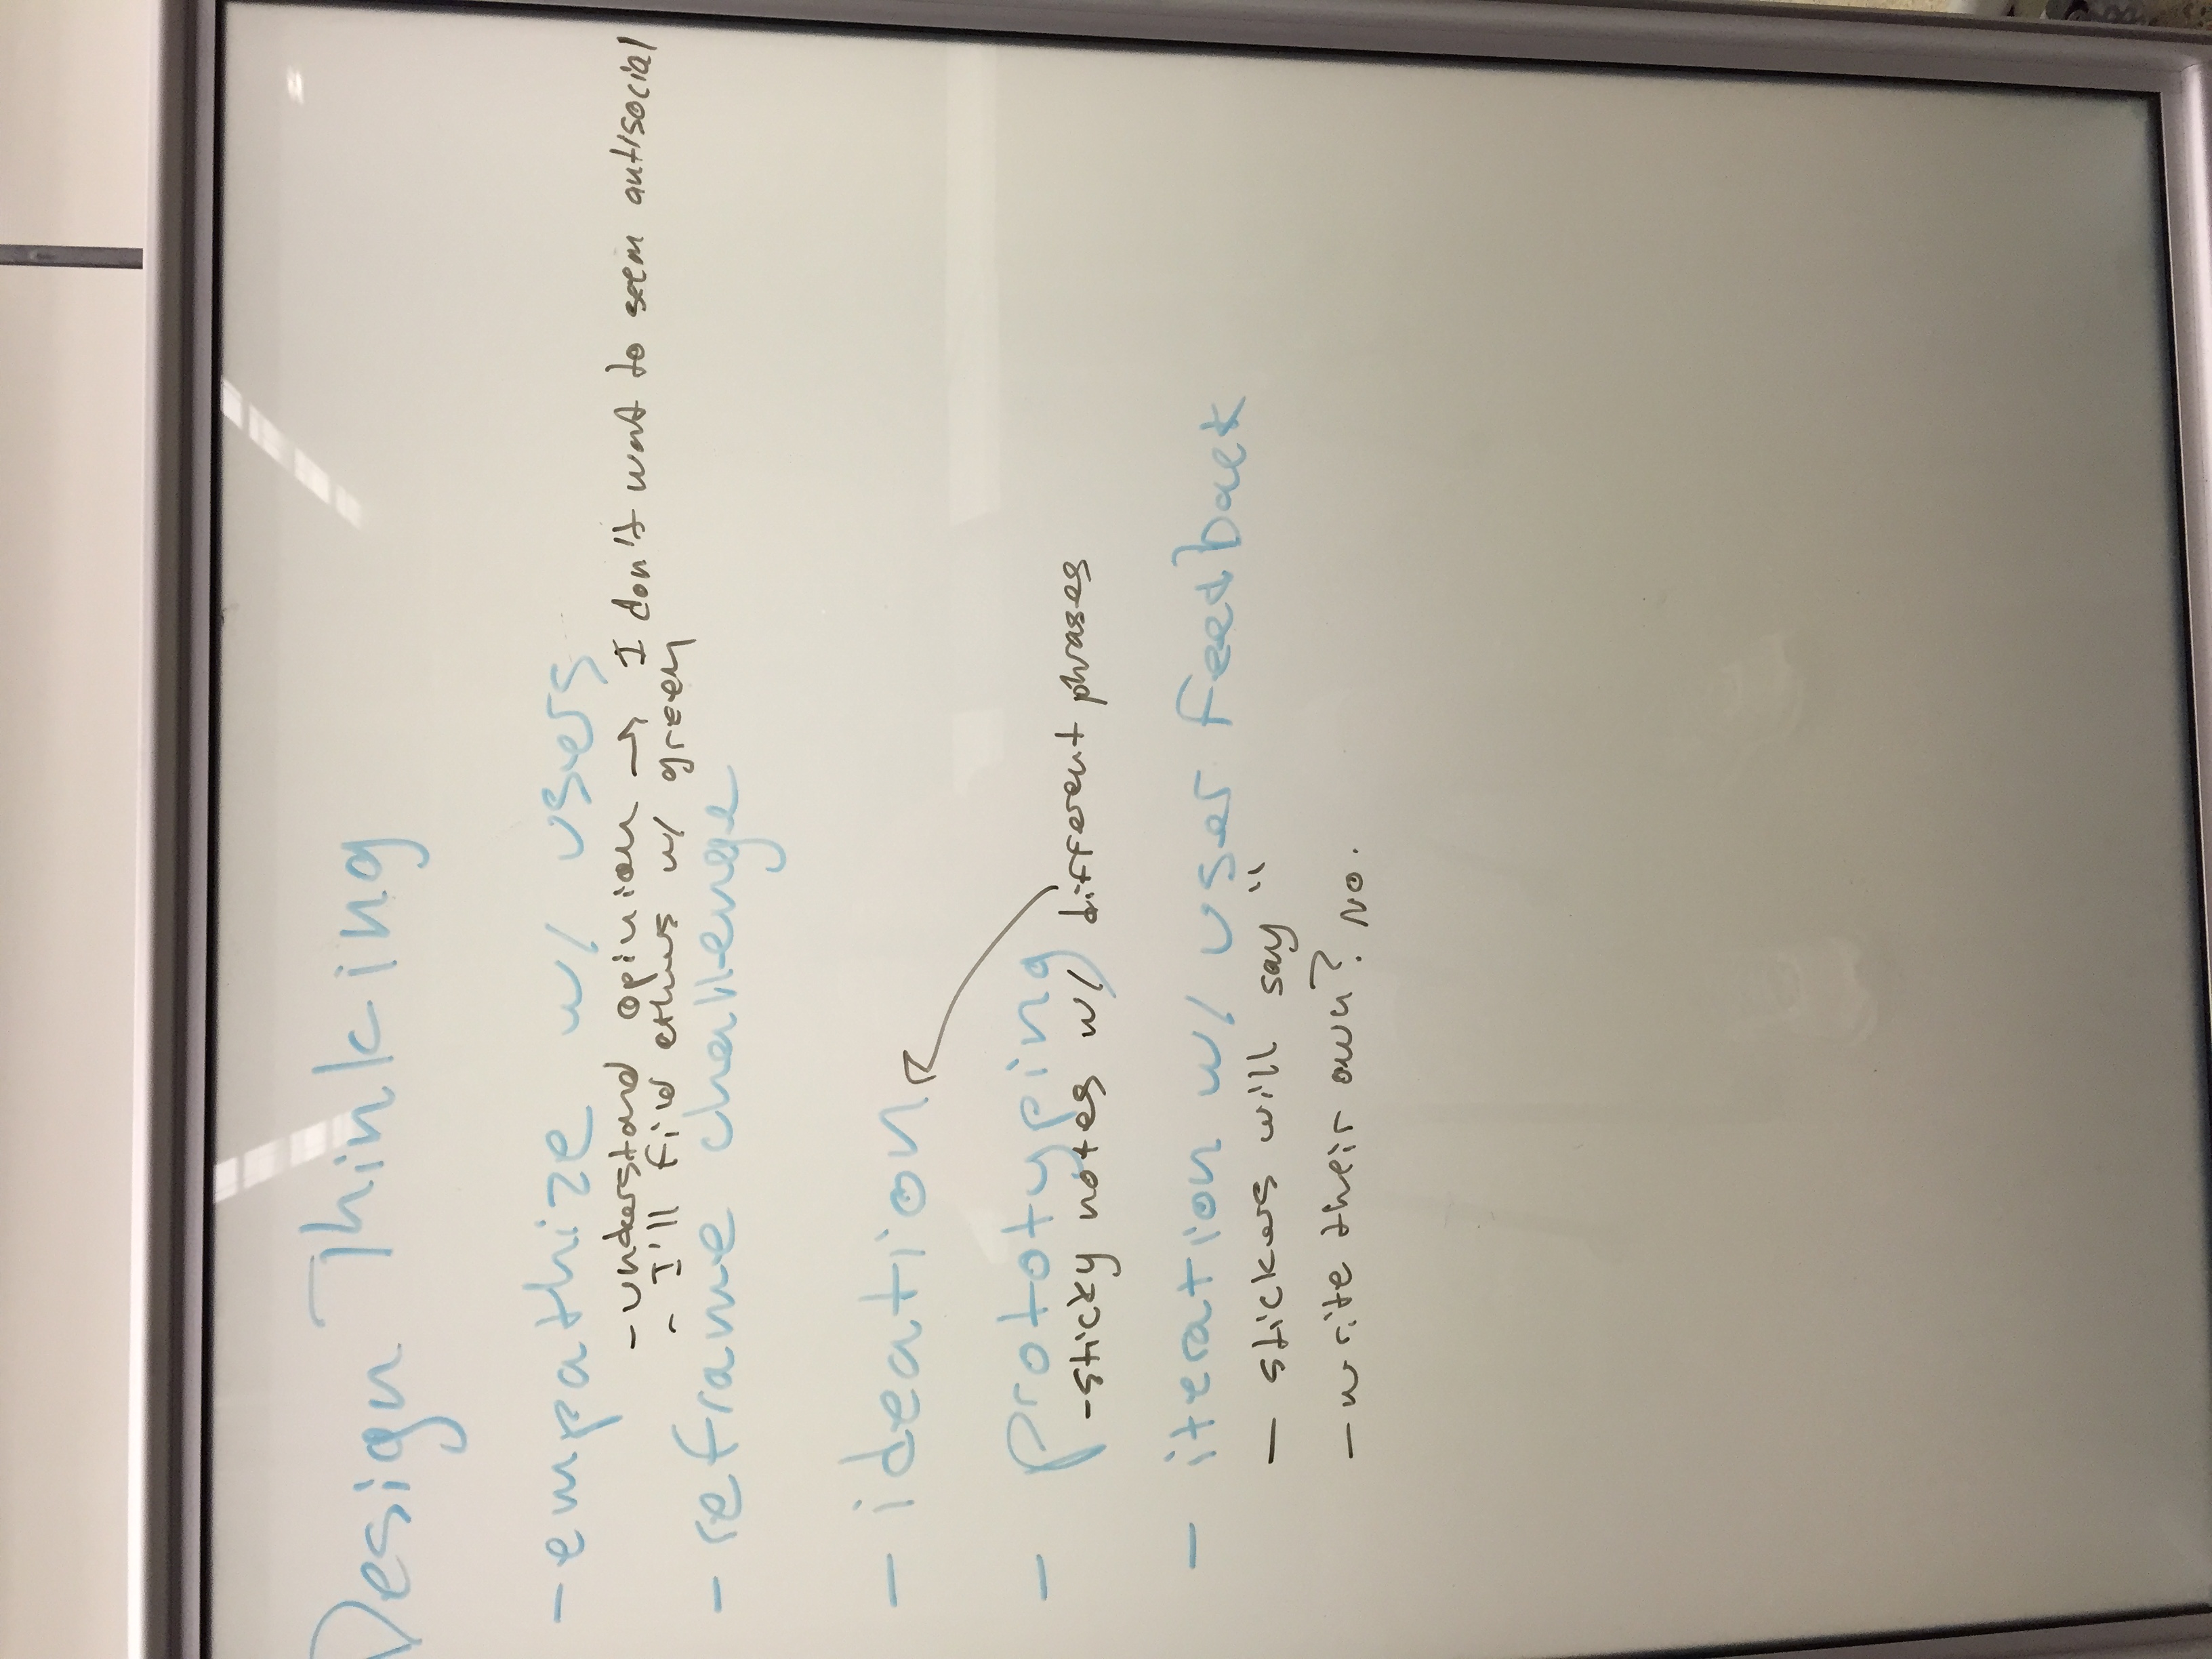 Design Thinking
- empathize w/ users
- understand opinion → I don't want to seem antisocial
- I'll find others w/ green
- reframe challenge
- ideation
- prototyping
- sticky notes w/ different phrases
- iteration w/ user feedback
- stickers will say "
- write their own? No.